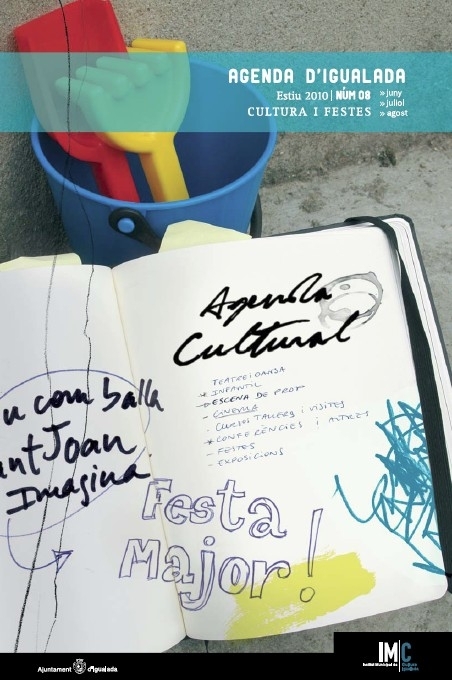 AGENDA D'IGUALADA
Estiu 2010 | NÚM 08
CULTURA I FESTES
» juny
» juliol
» agost
Agenda
Cultural
TEATRE I DANSA
* INFANTIL
ESCENA DE PROP
- CINEMA
- CURSOS TALLERS I VISITES
* CONFERÈNCIES I ALTRES
- FESTES
- EXPOSICIONS
u com balla
nt Joan
Imagina
Festa
Major!
Ajuntament d'Igualada
IMC
Institut Municipal de Cultura
Igualada